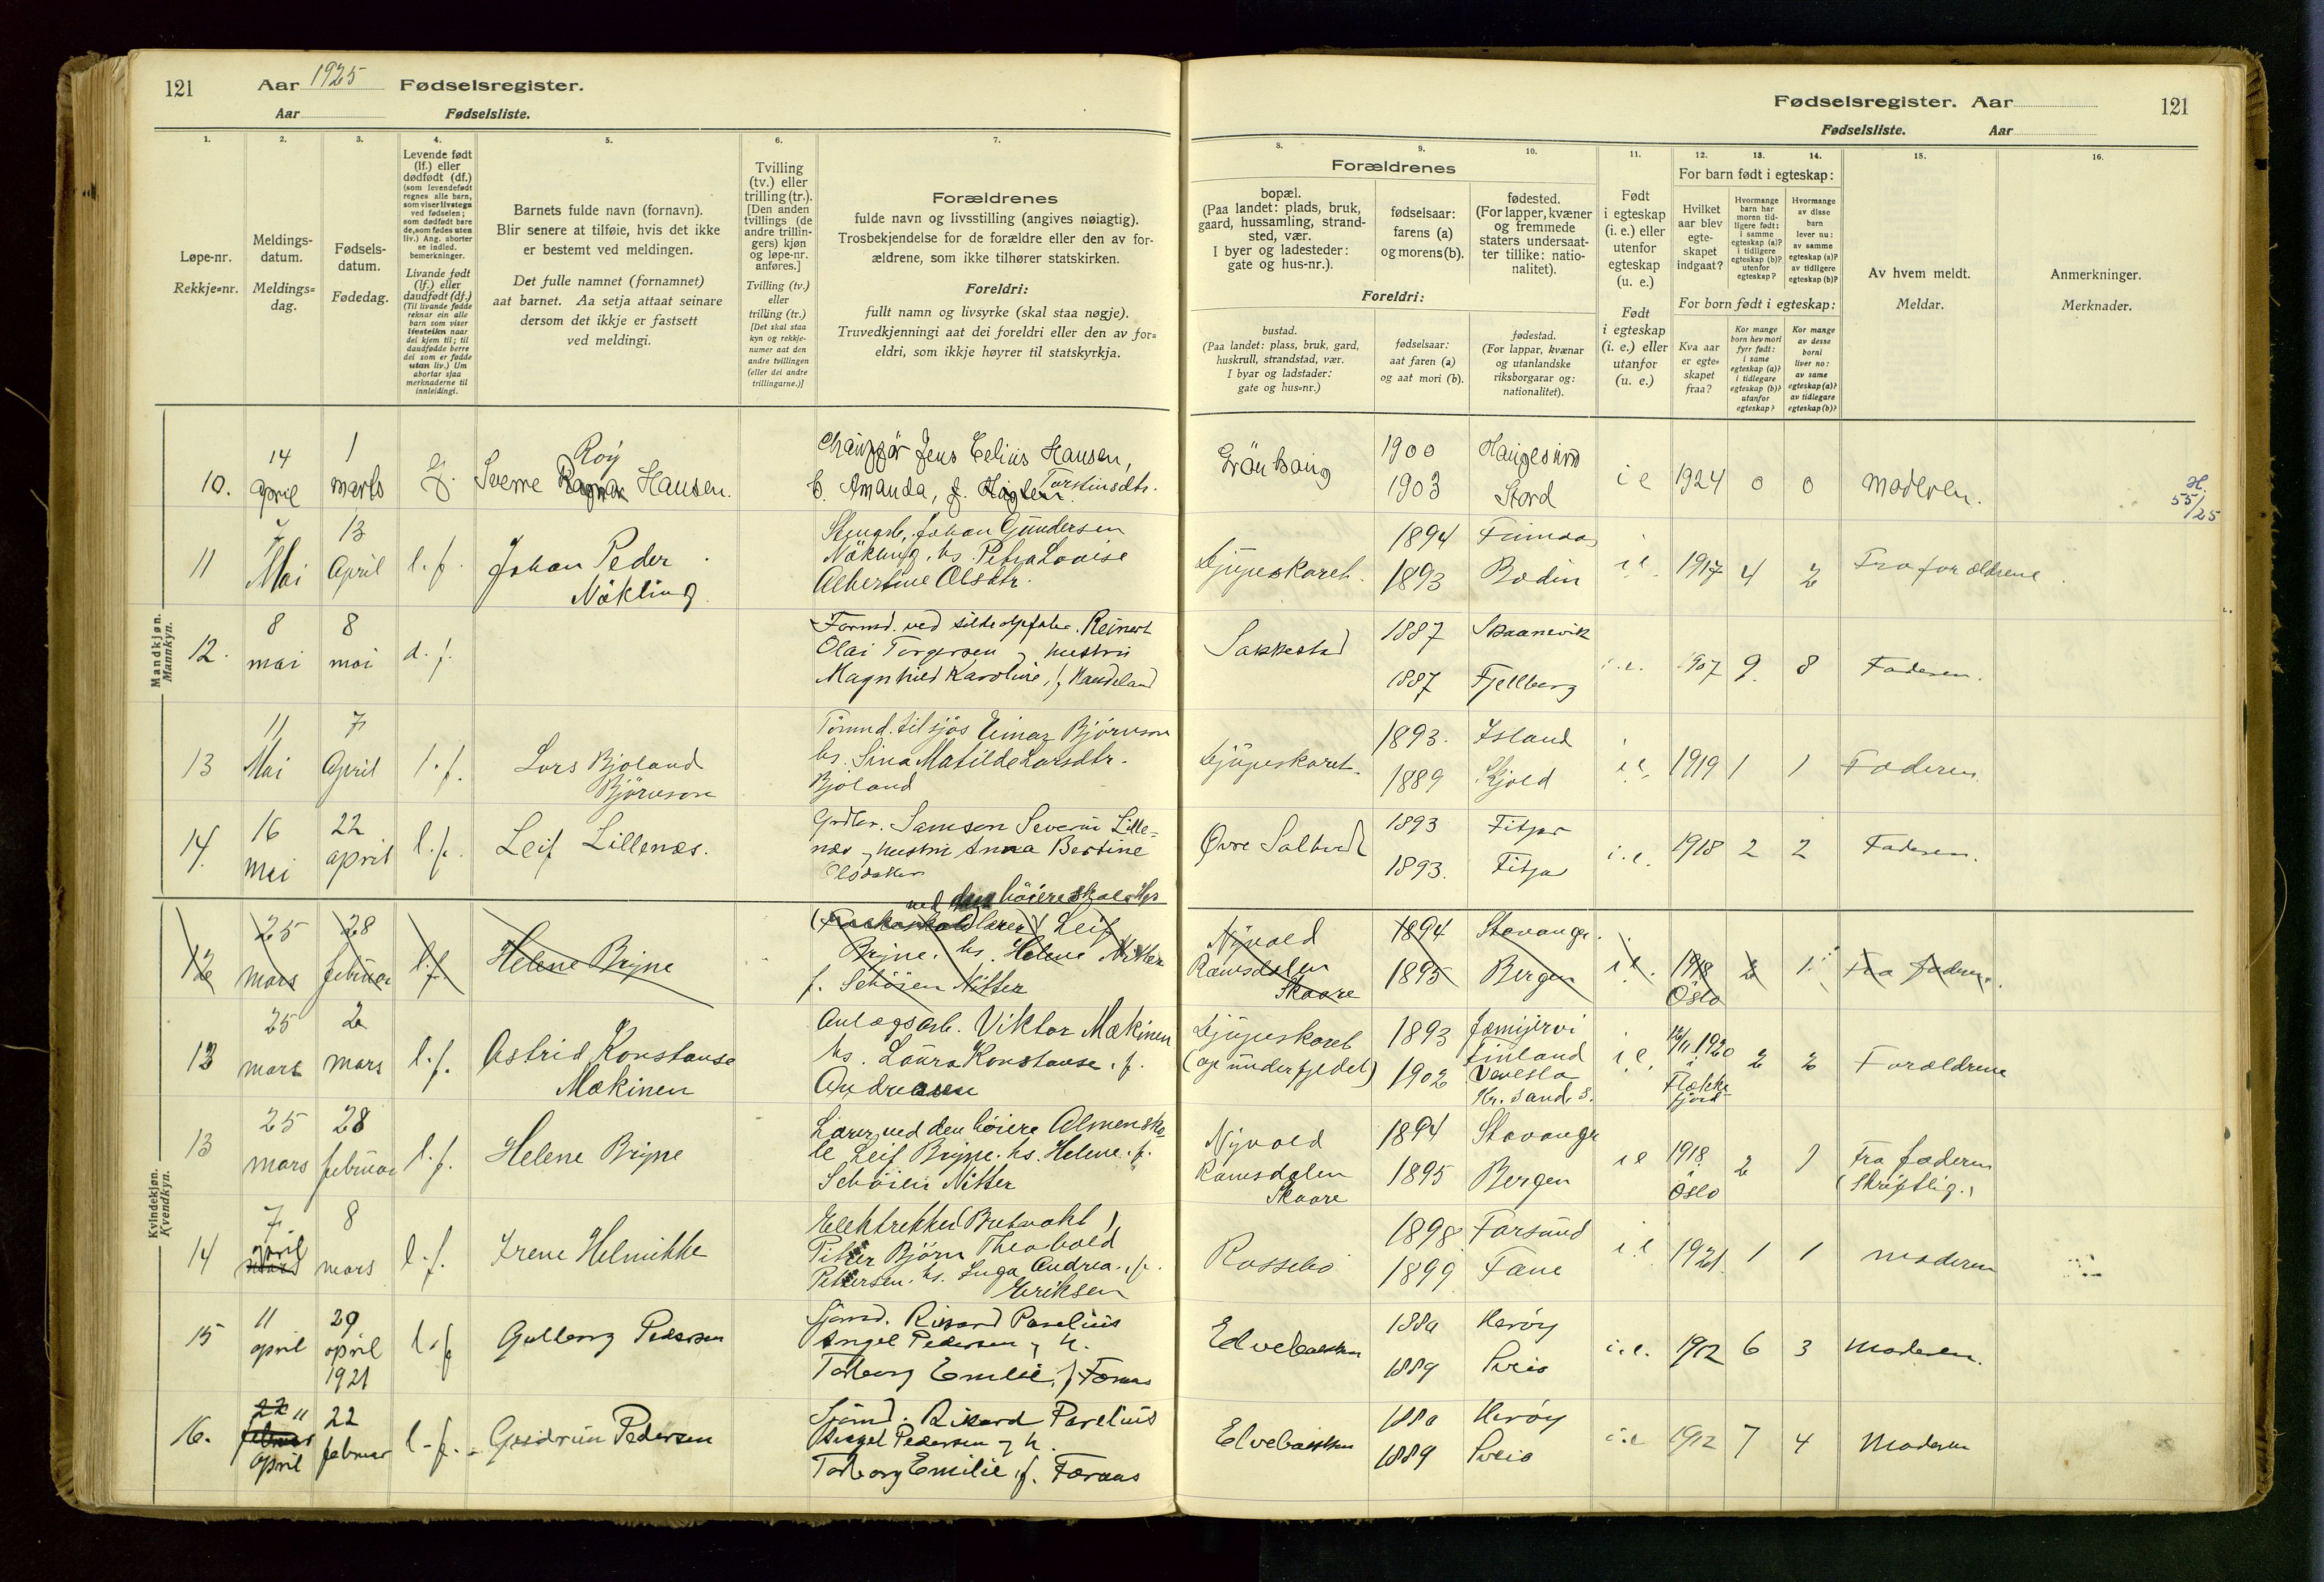 121 Aar 1925 Fødselsregister.
Aar Fødselsliste.
Fødselsregister. Aar 121
Fødselsliste. Aar
1. 2. 3. 4. 5. 6. 7. 8. 9. 10. 11. 12. 13. 14. 15. 16.
Løpe-nr.
Rekkje-nr.
Meldings-
datum.
Meldings-
dag.
Fødsels-
datum.
Fødedag.
Levende født
(lf.) eller
dødfødt (df.)
(som levendefødt
regnes alle barn,
som viser livstegn
ved fødselen;
som dødfødt bare
de, som fødes uten
liv.) Ang. aborter
se indled.
bemerkninger.
Livande født
(lf.) eller
daudfødt (df.)
(Til livande fødde
reknar ein alle
barn som viser
livsteikn naar
dei kjem til; til
daudfødde berre
dei som er fødde
utan liv.) Um
abortar sjaa
merknaderne til
innleidingi.
Barnets fulde navn (fornavn).
Blir senere at tilføie, hvis det ikke
er bestemt ved meldingen.
Det fulle namnet (fornamnet)
aat barnet. Aa setja attaat seinare
dersom det ikkje er fastsett
ved meldingi.
Tvilling
(tv.) eller
trilling (tr.).
[Den anden
tvillings (de
andre trillin-
gers) kjøn
og løpe-nr.
anføres.]
Tvilling (tv.)
eller
trilling (tr.)
[Det skal staa
kyn og rekkje-
numer aat den
andre tvillingen
(eller dei andre
trillingarne.)]
Forældrenes
fulde navn og livsstilling (angives nøiagtig).
Trosbekjendelse for de forældre eller den av for-
ældrene, som ikke tilhører statskirken.
Foreldri:
fullt namn og livsyrke (skal staa nøgje).
Truvedkjenningi aat dei foreldri eller den av for-
eldri, som ikkje høyrer til statskyrkja.
Forældrenes
bopæl.
(Paa landet: plads, bruk,
gaard, hussamling, strand-
sted, vær.
I byer og ladesteder:
gate og hus-nr.).
Foreldri:
bustad.
(Paa landet: plass, bruk, gard,
huskrull, strandstad, vær.
I byar og ladstader:
gate og hus-nr.)
fødselsaar:
farens (a)
og morens (b).
fødselsaar:
aat faren (a)
og aat mori (b).
fødested.
(For lapper, kvæner
og fremmede
staters undersaat-
ter tillike: natio-
nalitet).
fødestad.
(For lappar, kvænar
og utanlandske
riksborgarar og:
nationalitet).
Født
i egteskap
(i. e.) eller
utenfor
egteskap
(u. e.)
Født
i egteskap
(i. e.) eller
utanfor
(u. e.)
For barn født i egteskap:
Hvilket
aar blev
egte-
skapet
indgaat?
Hvormange
barn har
moren tid-
ligere født:
i samme
egteskap (a)?
i tidligere
egteskap (b)?
utenfor
egteskap?
Hvormange
av disse
barn
lever nu:
av samme
egteskap (a)?
av tidligere
egteskap (b)?
For born født i egteskap:
Kva aar
er egte-
skapet
fraa?
Kor mange
born hev mori
fyrr født:
i same
egteskap (a)?
i tidlegare
egteskap (b)?
utanfor
egteskap?
Kor mange
av desse
borni
liver no:
av same
egteskap (a)?
av tidlegare
egteskap (b)?
Av hvem meldt.
Meldar.
Anmerkninger.
Merknader.
Mandkjøn.
Mannkyn.
10. 14 april 1 marts Sverre Roy Hansen.
Jens Hansen,
Amanda, f. Torstinsdtr.
1900 Haugesund
1903 Stord
i e 1924 0 0 moderen.
H. 55/25
11 7 Mai 13 April l. f. Johan Peder
Nökling
Johan Gundersen
Nökling, hs. Petra Lovise
Albertine Olsdtr.
Djupeskaret.
1894
1893 Bodin
i e. 1917 4 2 Fra forældrene
12. 8 mai 8 mai d. f.
Formd. ved Reinert
Olai Torgersen og hustru
Magnhild Karoline, f. Haudeland
Sakkestad
1887 Skaanevik
1887 Fjellberg
i. e. 1907 9 8 Faderen.
13 11 Mai 7 April l. f. Lars Bjoland
Björnson
Tömmd. til sjøs Einar Björnson
hs. Sina Matilde Larsdtr.
Bjoland
Djupeskaret.
1893. Island
1889 Skjold
i e. 1919 1 1 Faderen
14. 16 mai 22 april l. f. Leif Lillenæs.
Samson Severin Lille-
næs og hustru Anna Bertine
Olsdatter
Øvre Salhus
1893 Fitjar
1893. Fitja
i. e. 1918 2 2 Faderen.
Kvindekjøn.
Kvendkyn.
12 25 mars 28 februar l. f. Helene Bryne
ved den höiere skole Hgs
lærer Leif
Bryne. hs. Helene Nitter
f. Schöien Nitter
Nyvold
Ramsdalen
Skaare
1894 Stavanger.
1895 Bergen
i e. 1918 Oslo 2 1 Fra faderen.
13 25 mars 2 mars l. f. Astrid Konstanse
Mækinen
Anlægsarb. Viktor Mækinen
hs. Laura Konstanse. f.
Andreasen
Djupeskaret
(op under fjeldet)
1893 Finland
1902 Vennesla
Kr. sand. S.
i e. 12/11 1920 i Flekke-
fjord
2 2 Forældrene
13 25 mars 28 februar l. f. Helene Bryne
Lærer ved den höiere Almensko-
le Leif Bryne. hs. Helene. f.
Schöien Nitter
Nyvold
Ramsdalen
Skaare
1894 Stavanger
1895 Bergen
i e 1918. Oslo 2 1 Fra faderen
(skriftlig.)
14 7 april 8 mars l. f. Irene Helmikke
Björn Theobold
Pettersen. hs. Inga Andrea. f.
Eriksen
Rossebö
1898 Farsund
1899 Fane
i e 1921. 1 1 moderen
15 11 april 29 april 1921 l. f. Gulborg Pedersen
Sjömd. Rikard Parelius
Angel Pedersen og h.
Torborg Emilie, f. Förnes
Elvebakken
1880 Herøy
1889 Sveio
i. e. 1912 6 3 Moderen.
16. 11 april 22 februar l. f. Gudrun Pedersen
Sjömd. Rikard Parelius
Angel Pedersen og h.
Torborg Emilie, f. Förnes
Elvebakken
1880 Herøy
1889 Sveio
i e 1912 7 4 Moderen